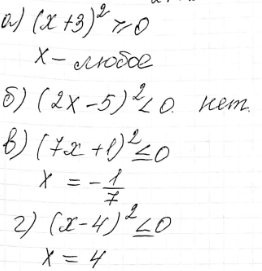 а) (x+3)² ≥ 0
x – любое
б) (2x – 5)² < 0. нет.
в) (7x + 1)² ≤ 0
x = – 1/7
г) (x – 4)² ≤ 0
x = 4